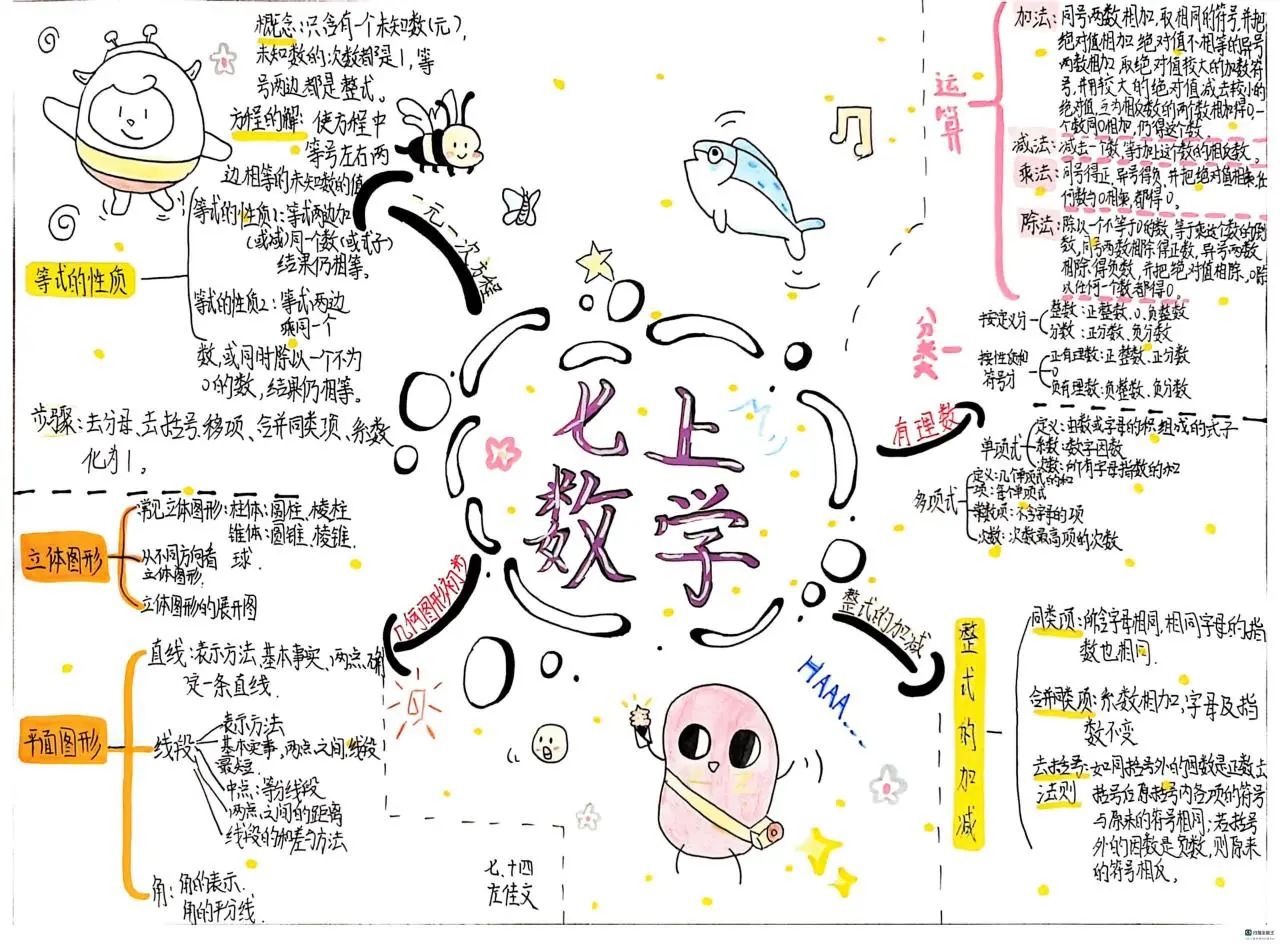 概念:只含有一个未知数(元),
未知数的次数都是1,等
号两边都是整式。
方程的解:使方程中
等号左右两
边相等的未知数的值
等式的性质
等式的性质1:等式两边加
(或减)同一个数(或式子)
结果仍相等。
等式的性质2:等式两边
乘同一个
数,或同时除以一个不为
0的数,结果仍相等。
步骤:去分母、去括号、移项、合并同类项、系数
化为1。
一元一次方程
七上
数学
运算
加法:同号两数相加,取相同的符号,并把
绝对值相加 绝对值不相等的异号
两数相加 取绝对值较大的加数符
号,并用较大的绝对值减去较小的
绝对值,互为相反数的两个数相加得0,一
个数同0相加,仍得这个数。
减法:减去一个数,等于加上这个数的相反数。
乘法:同号得正,异号得负,并把绝对值相乘,任
何数与0相乘,都得0。
除法:除以一个不等于0的数,等于乘这个数的倒
数,同号两数相除得正数,异号两数
相除得负数,并把绝对值相除,0除
以任何一个数都得0。
分类
按定义分
整数:正整数、0、负整数
分数:正分数、负分数
按性质和
符号分
正有理数:正整数、正分数
0
负有理数:负整数、负分数
有理数
单项式
定义:由数或字母的积组成的式子
系数:数字因数
次数:所有字母指数的和
多项式
定义:几个单项式的和
项:每个单项式
常数项:不含字母的项
次数:次数最高项的次数
整式的加减
整式的加减
同类项:所含字母相同,相同字母的指
数也相同.
合并同类项:系数相加,字母及指
数不变
去括号:如同括号外的因数是正数,去
法则 括号后原括号内各项的符号
与原来的符号相同;若括号
外的因数是负数,则原来
的符号相反。
几何图形初步
立体图形
常见立体图形:柱体:圆柱、棱柱
锥体:圆锥、棱锥.
球.
从不同方向看
立体图形.
立体图形的展开图
平面图形
直线:表示方法,基本事实、两点确
定一条直线.
线段
表示方法
基本实事,两点之间,线段
最短.
中点:等分线段
两点之间的距离
线段的和差与方法
角:角的表示.
角的平分线.
七.十四
左佳文
HAAA...
扫描全能王